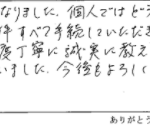 なりました。個人ではどう
件すべて手続していただき
度丁寧に誠実に教え
いました。今後もよろし
ありがとう